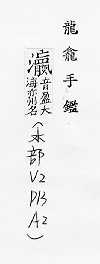 龍龕手鑑
瀛音盈大
海亦州名
(水部
V2
P13
A2)